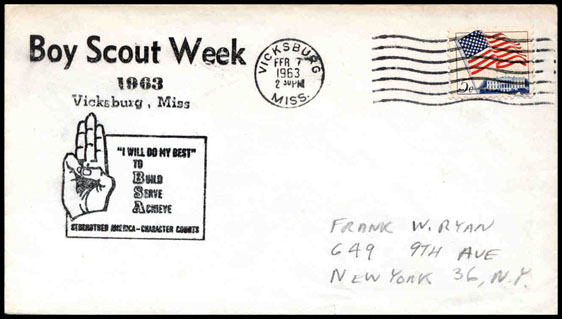 Boy Scout Week
1963
Vicksburg, Miss
VICKSBURG
FEB 7
1963
2 30PM
MISS.
5¢
"I WILL DO MY BEST"
TO
BUILD
SERVE
ACHIEVE
STRENGTHEN AMERICA-CHARACTER COUNTS
FRANK W. RYAN
649 9TH AVE
NEW YORK 36, N.Y.